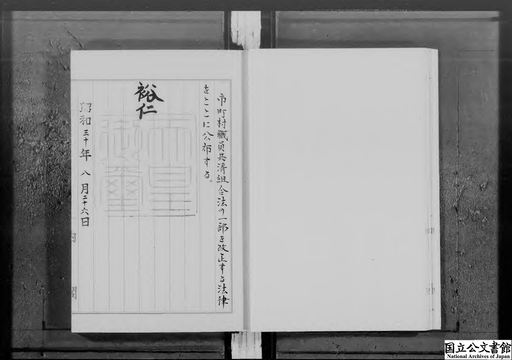 市町村職員共済組合法の一部を改正する法律
をここに公布する。
裕仁
天皇
御璽
昭和三十年八月二十六日
国立公文書館
National Archives of Japan